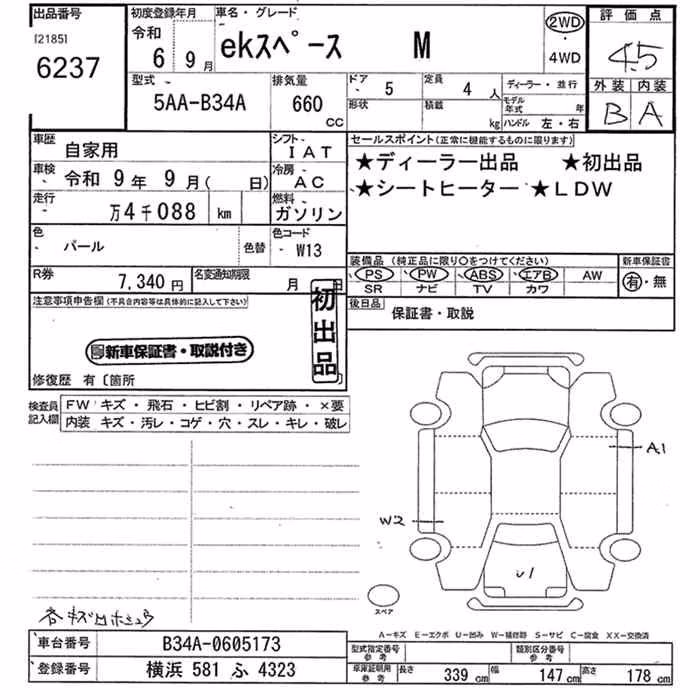 出品番号 初度登録年月 車名・グレード 2WD 評価点
[2185] 令和 4WD 4.5
6237 6年 9月 ekスペース M
型式 排気量 ドア 定員 ディーラー・並行 外装 内装
5AA-B34A 660 CC 5 4人 モデル年式 年 B A
形状 積載 kg ハンドル 左・右
車歴 自家用 シフト IAT セールスポイント(正常に機能するものに限ります)
車検 令和 9年 9月( 日) 冷房 AC ★ディーラー出品 ★初出品
走行 万4千088 km 燃料 ガソリン ★シートヒーター ★LDW
色 パール 色替 色コード W13
装備品(純正品に限り○をつけてください) 新車保証書
R券 7,340円 名変通知期限 月 日 PS PW ABS エアB AW 有・無
SR ナビ TV カワ
注意事項申告欄(不具合内容等は具体的に記入して下さい) 初出品 後日品 保証書・取説
新車保証書・取説付き
修復歴 有〔箇所
検査員記入欄 FW キズ・飛石・ヒビ割・リペア跡・×要
内装 キズ・汚レ・コゲ・穴・スレ・キレ・破レ
A1
W2
U1
スペア
A-キズ E-エクボ U-凹み W-補修跡 S-サビ C-腐食 XX-交換済
車台番号 B34A-0605173 型式指定番号 参考 類別区分番号 参考
登録番号 横浜 581 ふ 4323 車庫証明用 参考 長さ 339cm 幅 147cm 高さ 178cm